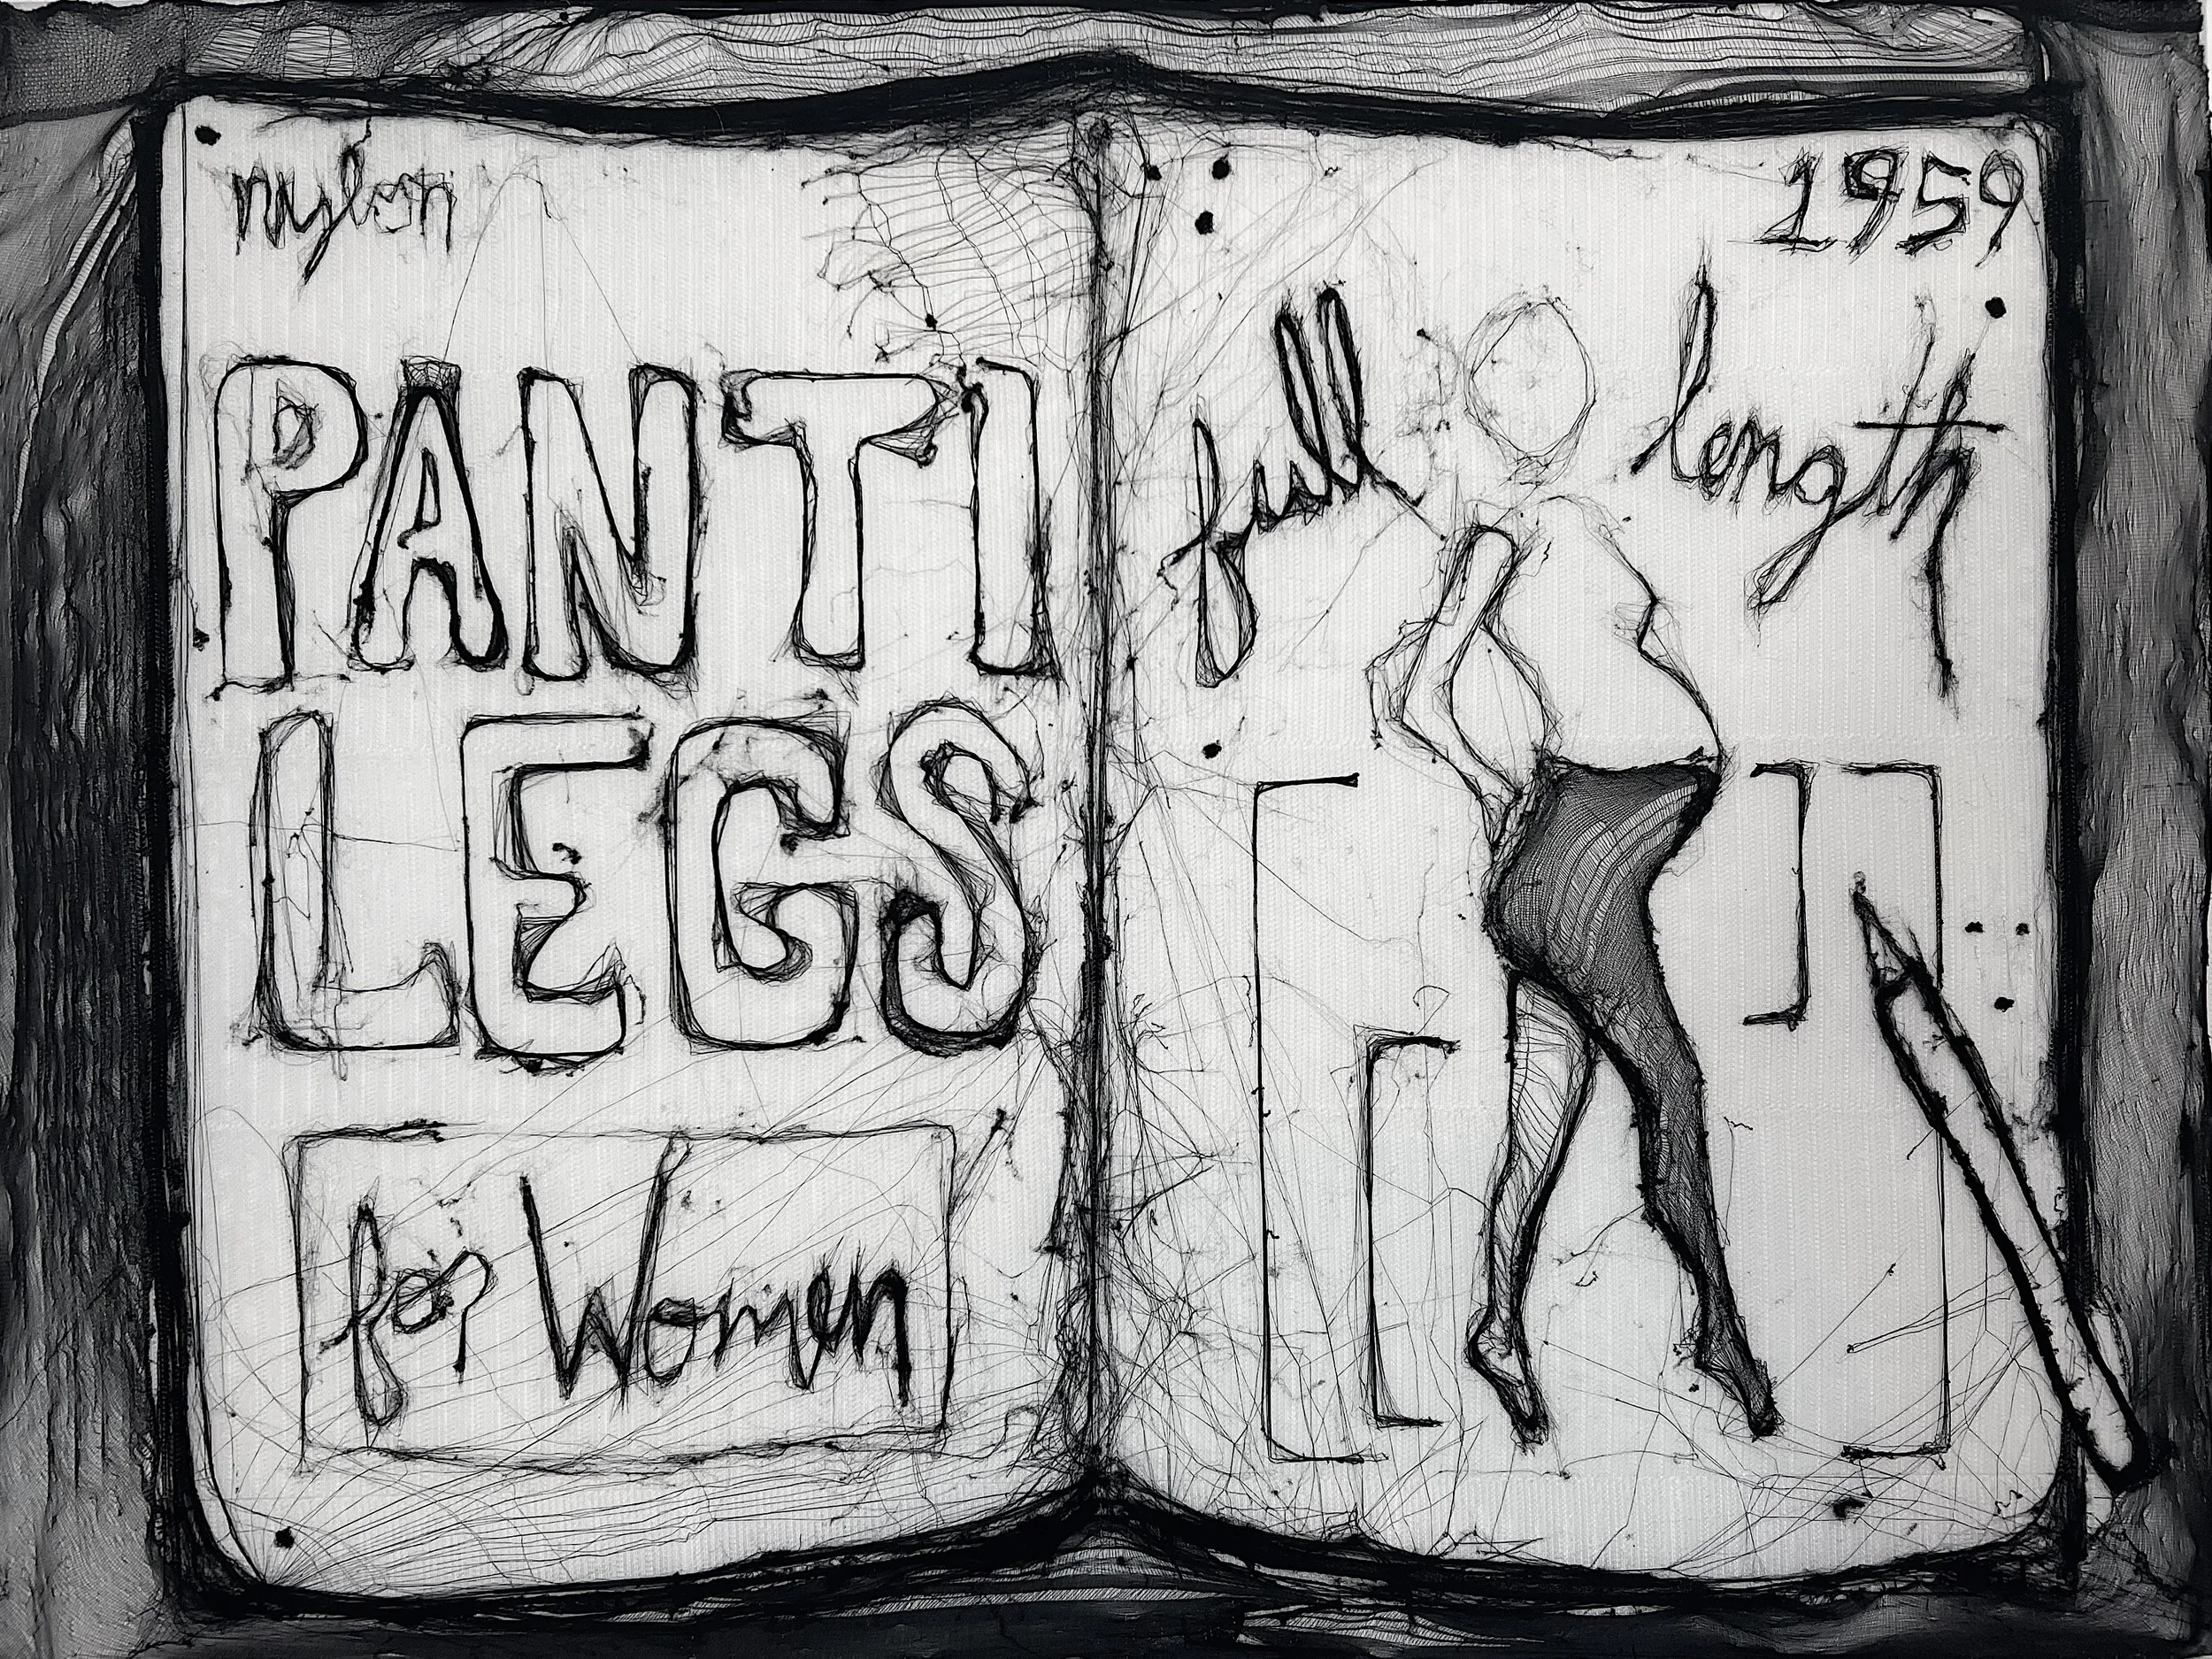 nylon
PANTI
LEGS
for Women
1959
full length